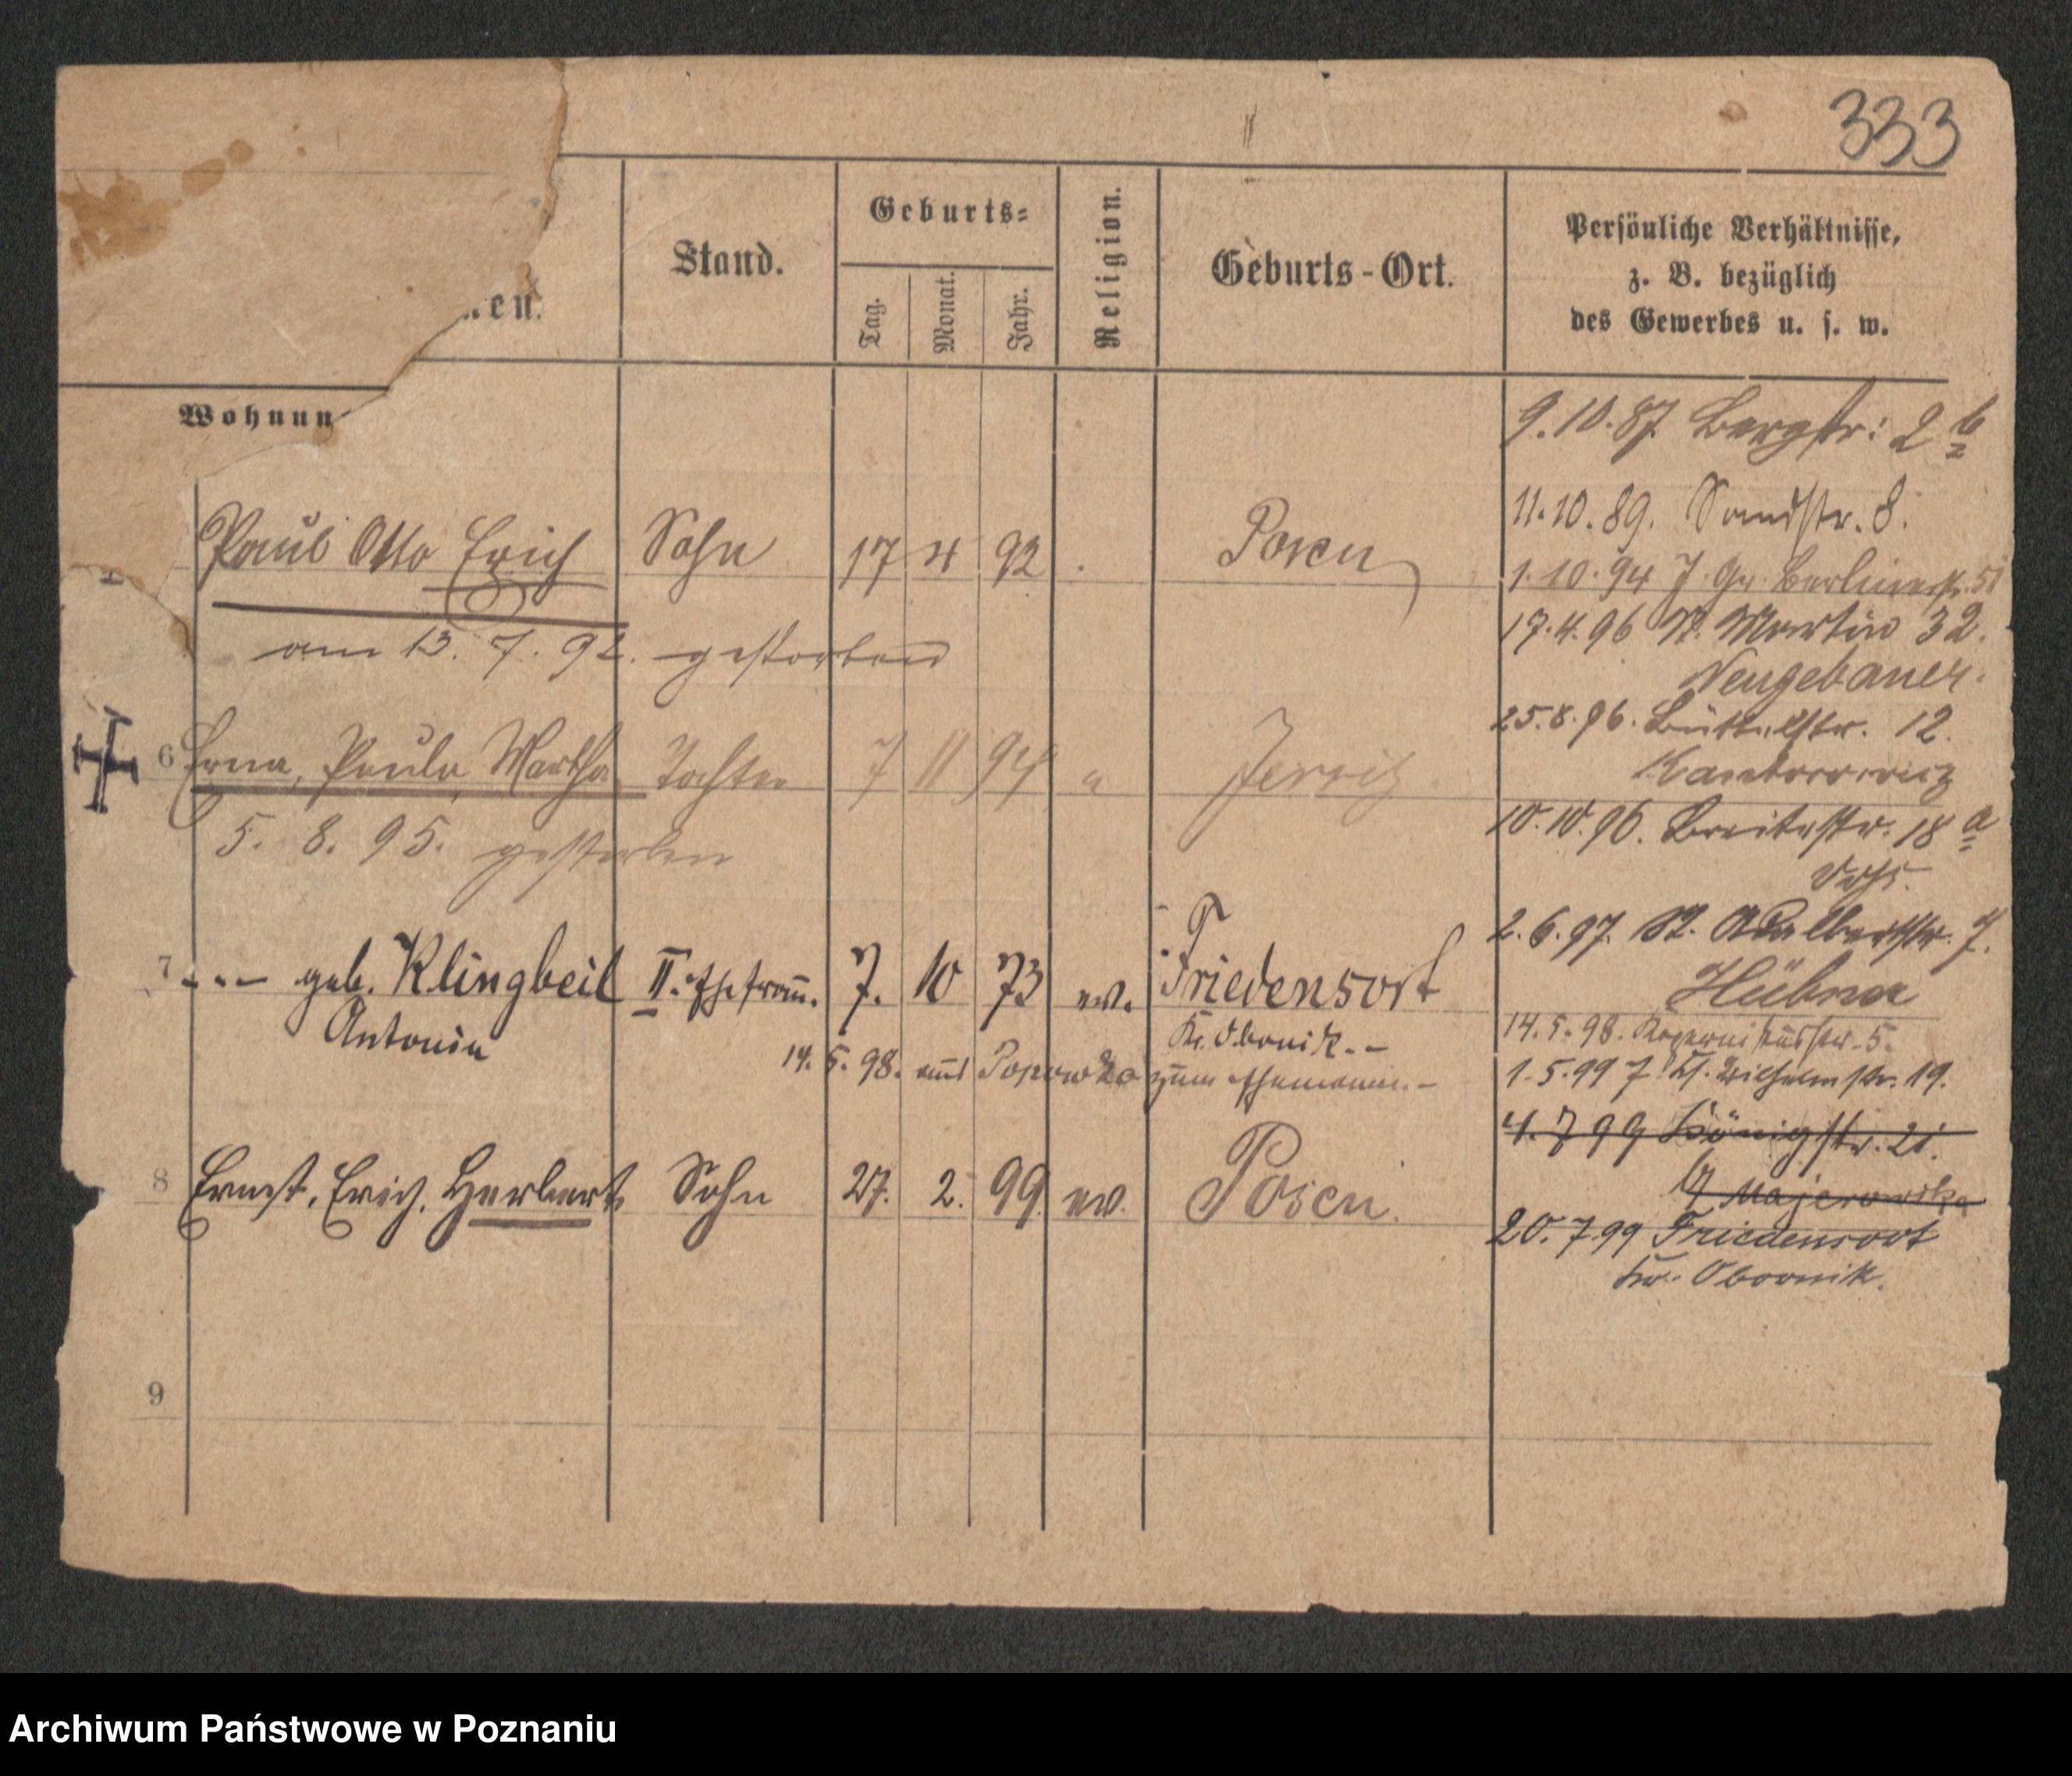 333
...en.
Stand.
Geburts-
Tag.
Monat.
Jahr.
Religion.
Geburts-Ort.
Persönliche Verhältnisse,
z. B. bezüglich
des Gewerbes u. s. w.
Wohnun
Paul Otto Erich Sohn 17 4 92 . Posen
am 13. 7. 92. gestorben
6 Erna, Paula, Martha Tochter 7 11 94 " Jersitz
5. 8. 95. gestorben
7 --- geb. Klingbeil II. Ehefrau. 7. 10 73 ev. Friedensort
Antonia Kr. Obornik. -
14. 5. 98. aus Popowko zum Ehemann. -
8 Ernst, Erich, Herbert Sohn 27. 2. 99. ev. Posen.
9
9.10.87. Bergstr: 2 b
11.10.89. Sandstr. 8.
1.10.94 J. Gr. Berlinerstr. 51
17.4.96 St. Martin 32.
Neugebauer.
25.8.96. Büttelstr. 12.
Kantorowicz
10.10.96. Breitestr. 18 a
Voss.
2.6.97. St. Adalbertstr. 7.
Hübner
14.5.98. Kopernikusstr. 5.
1.5.99 J. Kl. Wilhelmstr. 19.
4.7 99 Königstr. 21.
b/ Majerowska
20.7.99 Friedensort
Kr. Obornik.
Archiwum Państwowe w Poznaniu